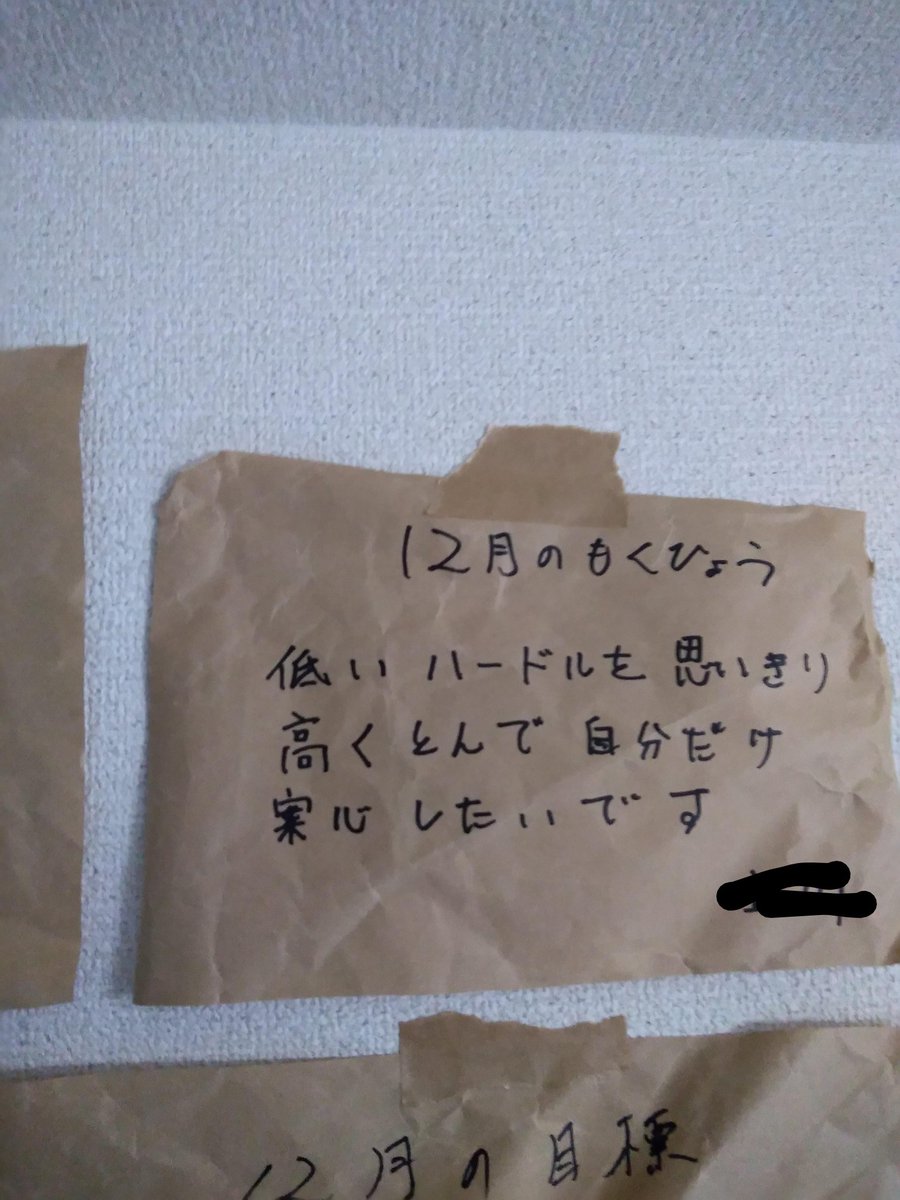 12月のもくひょう
低いハードルを思いきり
高くとんで自分だけ
案心したいです
12月の目標